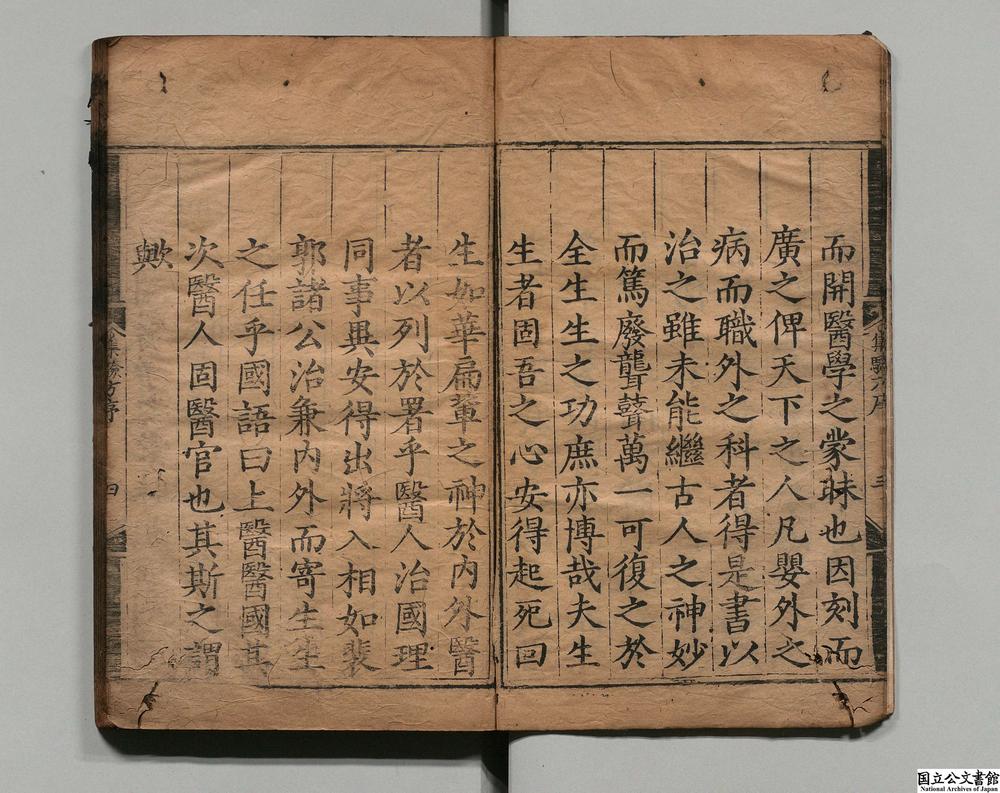 而開醫學之蒙昧也因刻而
廣之俾天下之人凡嬰外之
病而職外之科者得是書以
治之雖未能繼古人之神妙
而篤廢聾瞽萬一可復之於
全生生之功庶亦博哉夫生
生者固吾之心安得起死回
生如華扁輩之神於內外醫
者以列於署乎醫人治國理
同事異安得出將入相如裴
郭諸公治兼內外而寄生生
之任乎國語曰上醫醫國其
次醫人固醫官也其斯之謂
歟
集驗方序 三
集驗方序 四
国立公文書館
National Archives of Japan